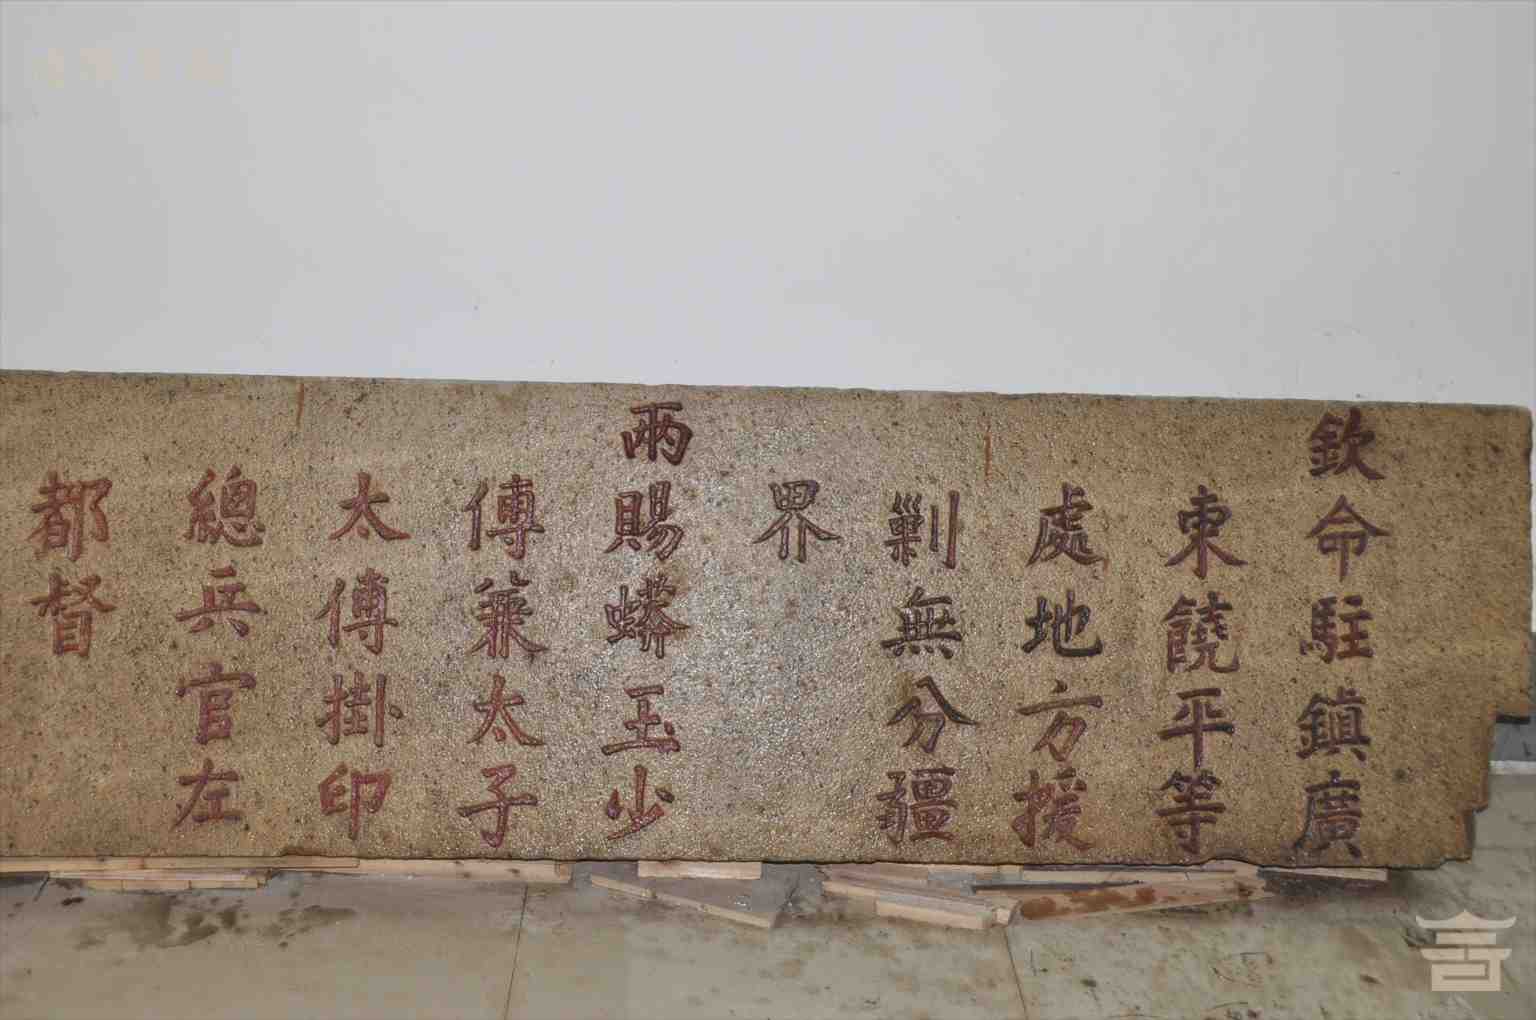 欽命駐鎮廣
東饒平等
處地方援
剿無分疆
界
兩賜蟒玉少
傅兼太子
太傅掛印
總兵官左
都督